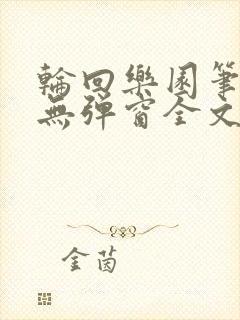 輪回樂園筆
無彈窗全文
金茵